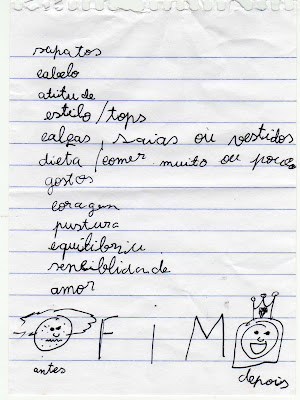 sapatos
cabelo
atitude
estilo / tops
calças, saias ou vestidos
dieta / comer muito ou pouco
gostos
coragem
pustura
equilibriu
sensiblidande
amor
FiM
antes
depois